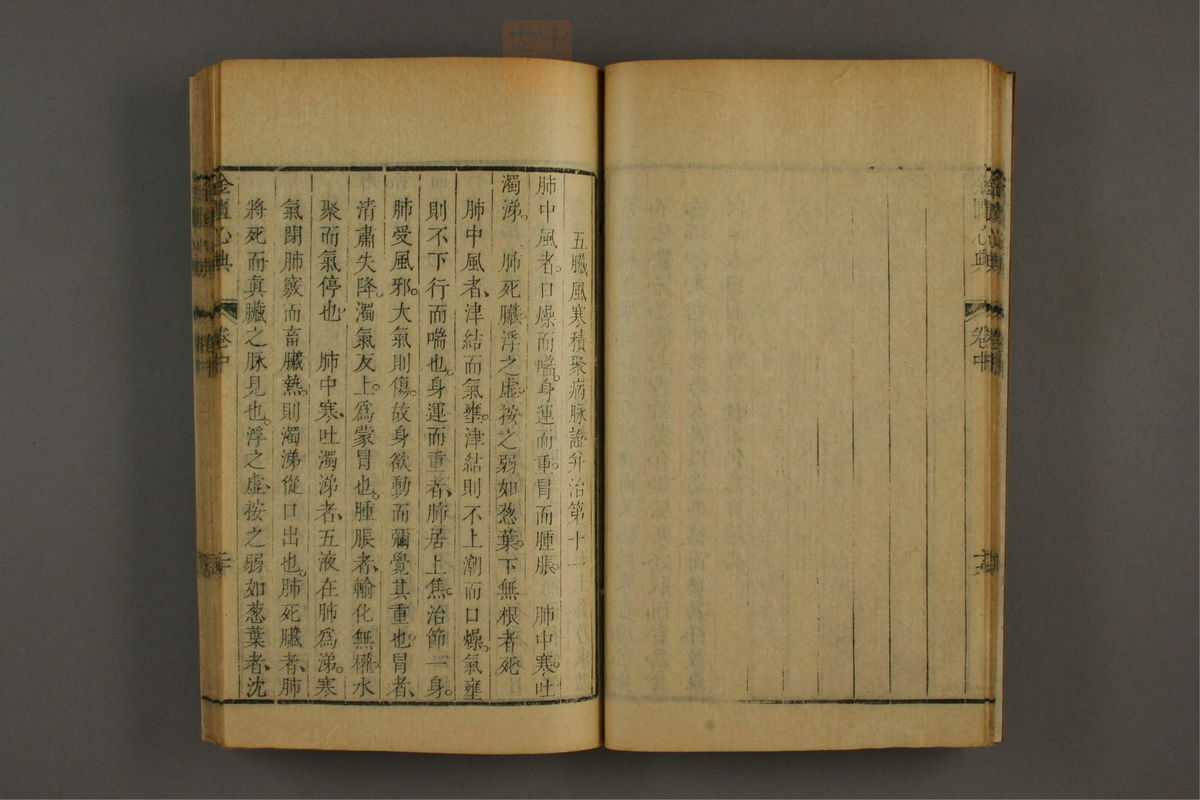 金匱心典
卷中
五臟風寒積聚病脉證并治第十一
肺中風者。口燥而喘。身運而重。冒而腫脹　肺中寒。吐
濁涕。　肺死臟。浮之虛。按之弱如葱葉。下無根者。死
肺中風者、津結而氣壅。津結則不上潮而口燥。氣壅
則不下行而喘也。身運而重者、肺居上焦。治節一身。
肺受風邪。大氣則傷。故身欲動而彌覺其重也。冒者、
清肅失降。濁氣反上。爲蒙冒也。腫脹者、輸化無權。水
聚而氣停也　肺中寒、吐濁涕者、五液在肺爲涕。寒
氣閉肺竅而畜臟熱。則濁涕從口出也。肺死臟者、肺
將死而眞臟之脉見也。浮之虛、按之弱如葱葉者、沈
金匱心典
卷中